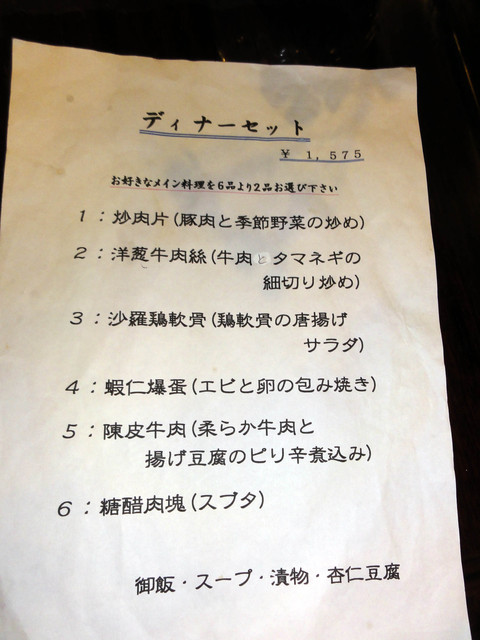 ディナーセット
¥ 1,575
お好きなメイン料理を6品より2品お選び下さい
1：炒肉片(豚肉と季節野菜の炒め)
2：洋葱牛肉絲(牛肉とタマネギの
細切り炒め)
3：沙羅鶏軟骨(鶏軟骨の唐揚げ
サラダ)
4：蝦仁爆蛋(エビと卵の包み焼き)
5：陳皮牛肉(柔らか牛肉と
揚げ豆腐のピリ辛煮込み)
6：糖醋肉塊(スブタ)
御飯・スープ・漬物・杏仁豆腐